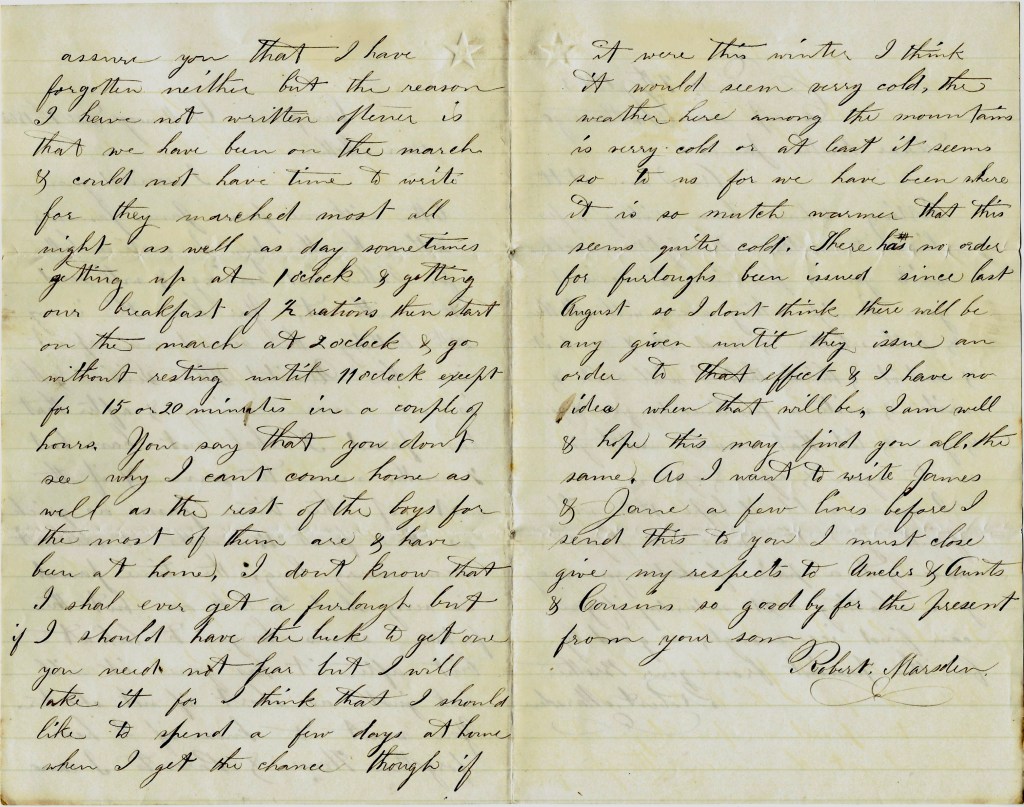 assure you that I have
forgotten neither but the reason
I have not written oftener is
that we have been on the march
& could not have time to write
for they marched most all
night as well as day sometimes
getting up at 1 oclock & getting
our breakfast of ½ rations then start
on the march at 2 oclock & go
without resting until 11 oclock except
for 15 or 20 minutes in a couple of
hours. You say that you dont
see why I cant come home as
well as the rest of the boys for
the most of them are & have
been at home. I dont know that
I shal ever get a furlough but
if I should have the luck to get one
you need not fear but I will
take it for I think that I should
like to spend a few days at home
when I get the chance though if
it were this winter I think
it would seem verry cold, the
weather here among the mountains
is verry cold or at least it seems
so to us for we have been where
it is so mutch warmer that this
seems quite cold. There has no order
for furloughs been issued since last
August so I dont think there will be
any given until they issue an
order to that effect & I have no
idea when that will be, I am well
& hope this may find you all, the
same. As I want to write James
& Jane a few lines before I
send this to you I must close
give my respects to Uncles & Aunts
& Cousins so good by for the present
from your son
Robert. Marsden.